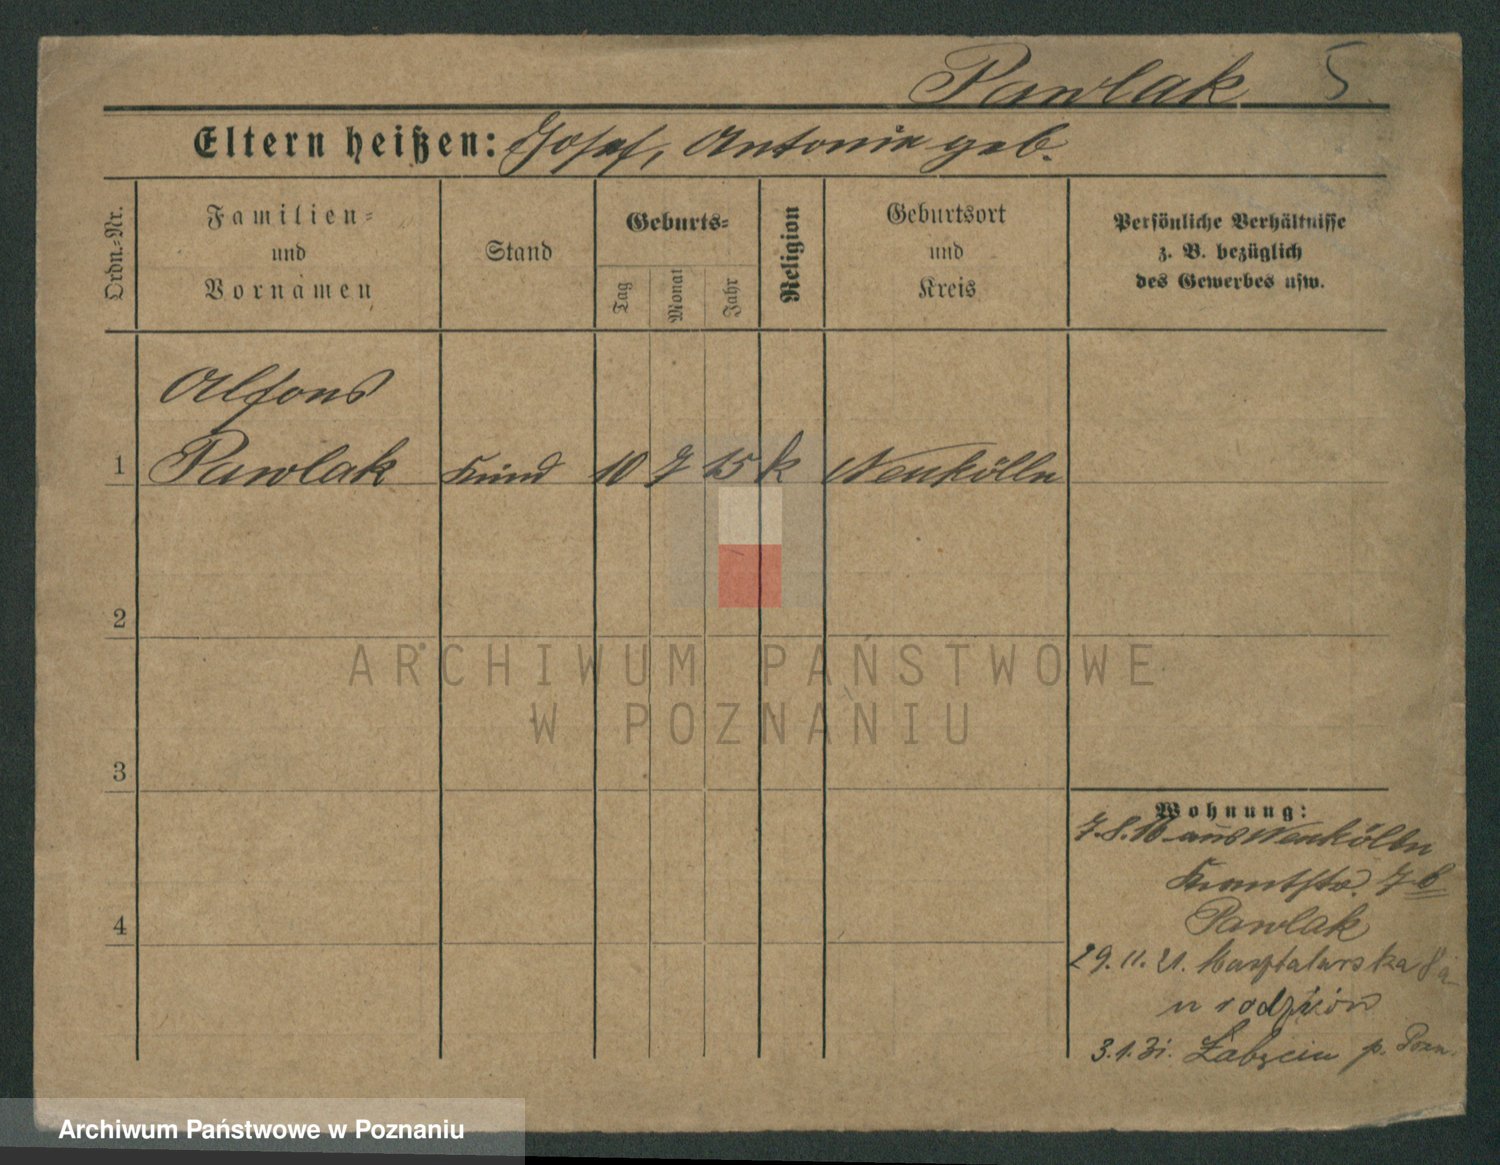 Pawlak 5
Eltern heißen: Josef, Antonie geb.
Ordn.-Nr.
Familien-
und
Vornamen
Stand
Geburts-
Tag
Monat
Jahr
Religion
Geburtsort
und
Kreis
Persönliche Verhältnisse
z. B. bezüglich
des Gewerbes usw.
Alfons
1 Pawlak Kind 10 7 15 k Neukölln
2
3
4
Wohnung:
7.8.16 aus Neukölln
Pawlak
29.11.21.
u rodziców
3.1.31. p. Pozn.
ARCHIWUM PAŃSTWOWE
W POZNANIU
Archiwum Państwowe w Poznaniu